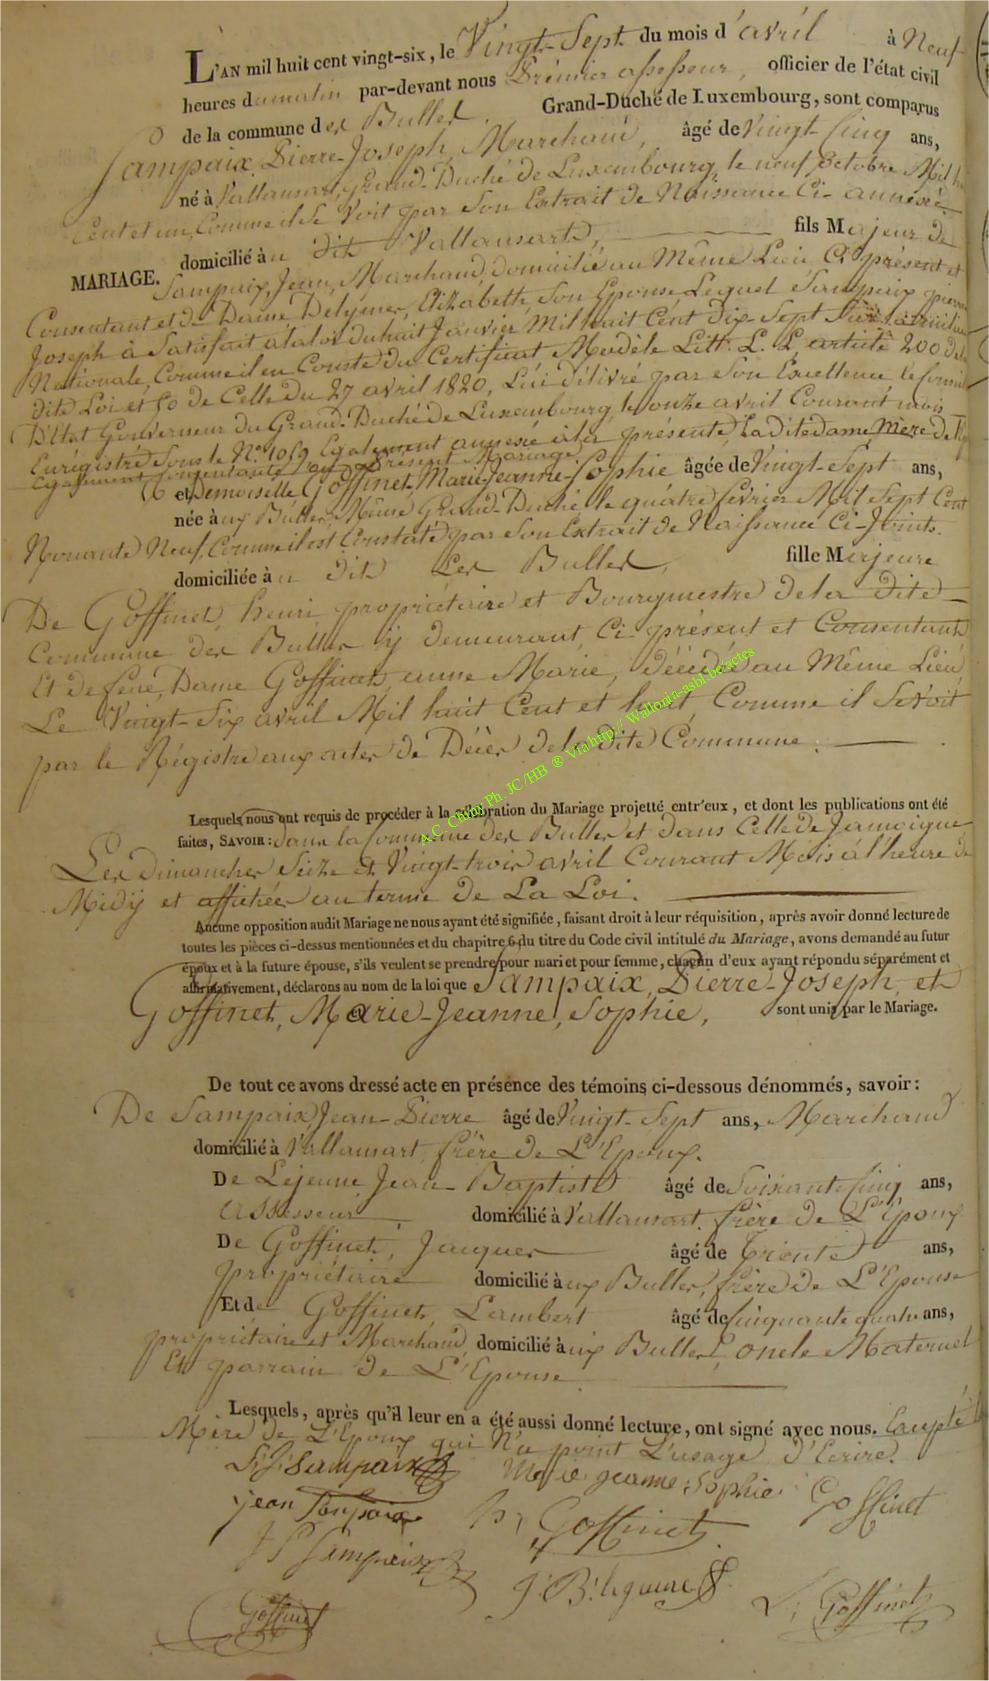 L'AN mil huit cent vingt-six, le Vingt-Sept du mois d'avril à Neuf
heures du matin par-devant nous Prémier assesseur, officier de l'état civil
de la commune des Bulles, Grand-Duché de Luxembourg, sont comparus
Sampaix, Pierre-Joseph, Marchand, âgé de Vingt-Cinq ans,
né à Vallansart, Grand-Duché de Luxembourg, le neuf Octobre Mil huit
Cent et un, Comme il se Voit par Son Extrait de Naissance Ci-annexé
MARIAGE. domicilié au dit Vallansart, fils Majeur de
Sampaix, Jean, Marchand, domicilié au Même Lieu Ci présent et
Consentant et de Dame Delymer, Elizabeth, Son Epouse Lequel Sampaix pierre
Joseph à Satisfait à la loi du huit Janvier Mil huit Cent Dix-Sept Sur la milice
Nationale, Comme il en Conste du Certificat Modèle Litt. L. L. article 200 de la
dite Loi et 50 de Celle du 27 avril 1820, Lui délivré par Son Excellence le
D'Etat Gouverneur du Grand-Duché de Luxembourg, le onze avril Courant mois
Enrégistré Sous le N° 1059 Egalement annexé à la présente, La dite dame Mere de
Egalement Consentante au Présent Mariage
et Demoiselle Goffinet, Marie-Jeanne-Sophie âgée de Vingt-Sept ans,
née aux Bulles, Même Grand-Duché le quatre fevrier Mil Sept Cent
Nonante Neuf, Comme il est Constaté par Son Extrait de Naissance Ci-Joint.
domiciliée au dit Les Bulles, fille Majeure
De Goffinet, henri, propriétaire et Bourgmestre de la dite
Commune des Bulles y demeurant Ci-présent et Consentant
Et de feue, Dame Goffinet, anne Marie, décédée au Même Lieu
Le Vingt-Six avril Mil huit Cent et huit Comme il Se Voit
par le Régistre aux actes de Décès de la dite Commune.
A.C. Chiny Ph. JC/HB ® Via http:// Wallonia-asbl.be/actes
Lesquels nous ont requis de procéder à la célébration du Mariage projetté entr'eux, et dont les publications ont été
faites, SAVOIR: dans la Commune des Bulles et dans Celle de Jamoigne
Les dimanches Seize et Vingt-trois avril Courant Mois à l'heure de
Midÿ et affichées au terme de La Loi.
Aucune opposition audit Mariage ne nous ayant été signifiée, faisant droit à leur réquisition, après avoir donné lecture de
toutes les pièces ci-dessus mentionnées et du chapitre 6 du titre du Code civil intitulé du Mariage, avons demandé au futur
époux et à la future épouse, s'ils veulent se prendre pour mari et pour femme, chacun d'eux ayant répondu séparément et
affirmativement, déclarons au nom de la loi que Sampaix, Pierre-Joseph, et
Goffinet, Marie-Jeanne, Sophie, sont unis par le Mariage.
De tout ce avons dressé acte en présence des témoins ci-dessous dénommés, savoir:
De Sampaix, Jean-Pierre âgé de Vingt-Sept ans, Marchand
domicilié à Vallansart, frère de L'Epoux.
De Lejeune Jean-Baptiste âgé de Soixante Cinq ans,
Assesseur, domicilié à Vallansart, frère de L'Epoux
De Goffinet, Jacques âgé de Trente ans,
propriétaire domicilié aux Bulles, frère de L'Epouse
Et de Goffinet, Lambert âgé de Cinquante quatre ans,
propriétaire et Marchand, domicilié aux Bulles, oncle Maternel
Et parrain de L'Epouse
Lesquels, après qu'il leur en a été aussi donné lecture, ont signé avec nous. Excepté la
Mère de L'Epoux qui N'a point L'usage d'Ecrire.
P. J. Sampaix Marie jeanne Sophie Goffinet
jean Sanpaix h, Goffinet
J P Sampaix J. B. lejeune
Goffinet L, Goffinet